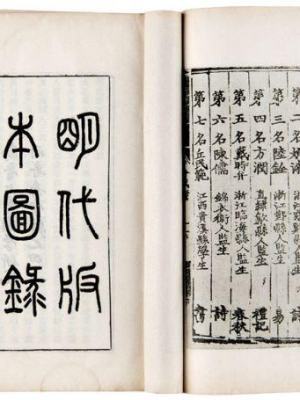 第二名
第三名陸銓 浙江鄞縣人監生 易
第四名方潤 直隸歙縣人監生 禮記
第五名戴時弁 浙江臨海縣學生 春秋
第六名陳儒 錦衣衛人監生 詩
第七名丘民範 江西貴溪縣學生
明代版
本圖錄